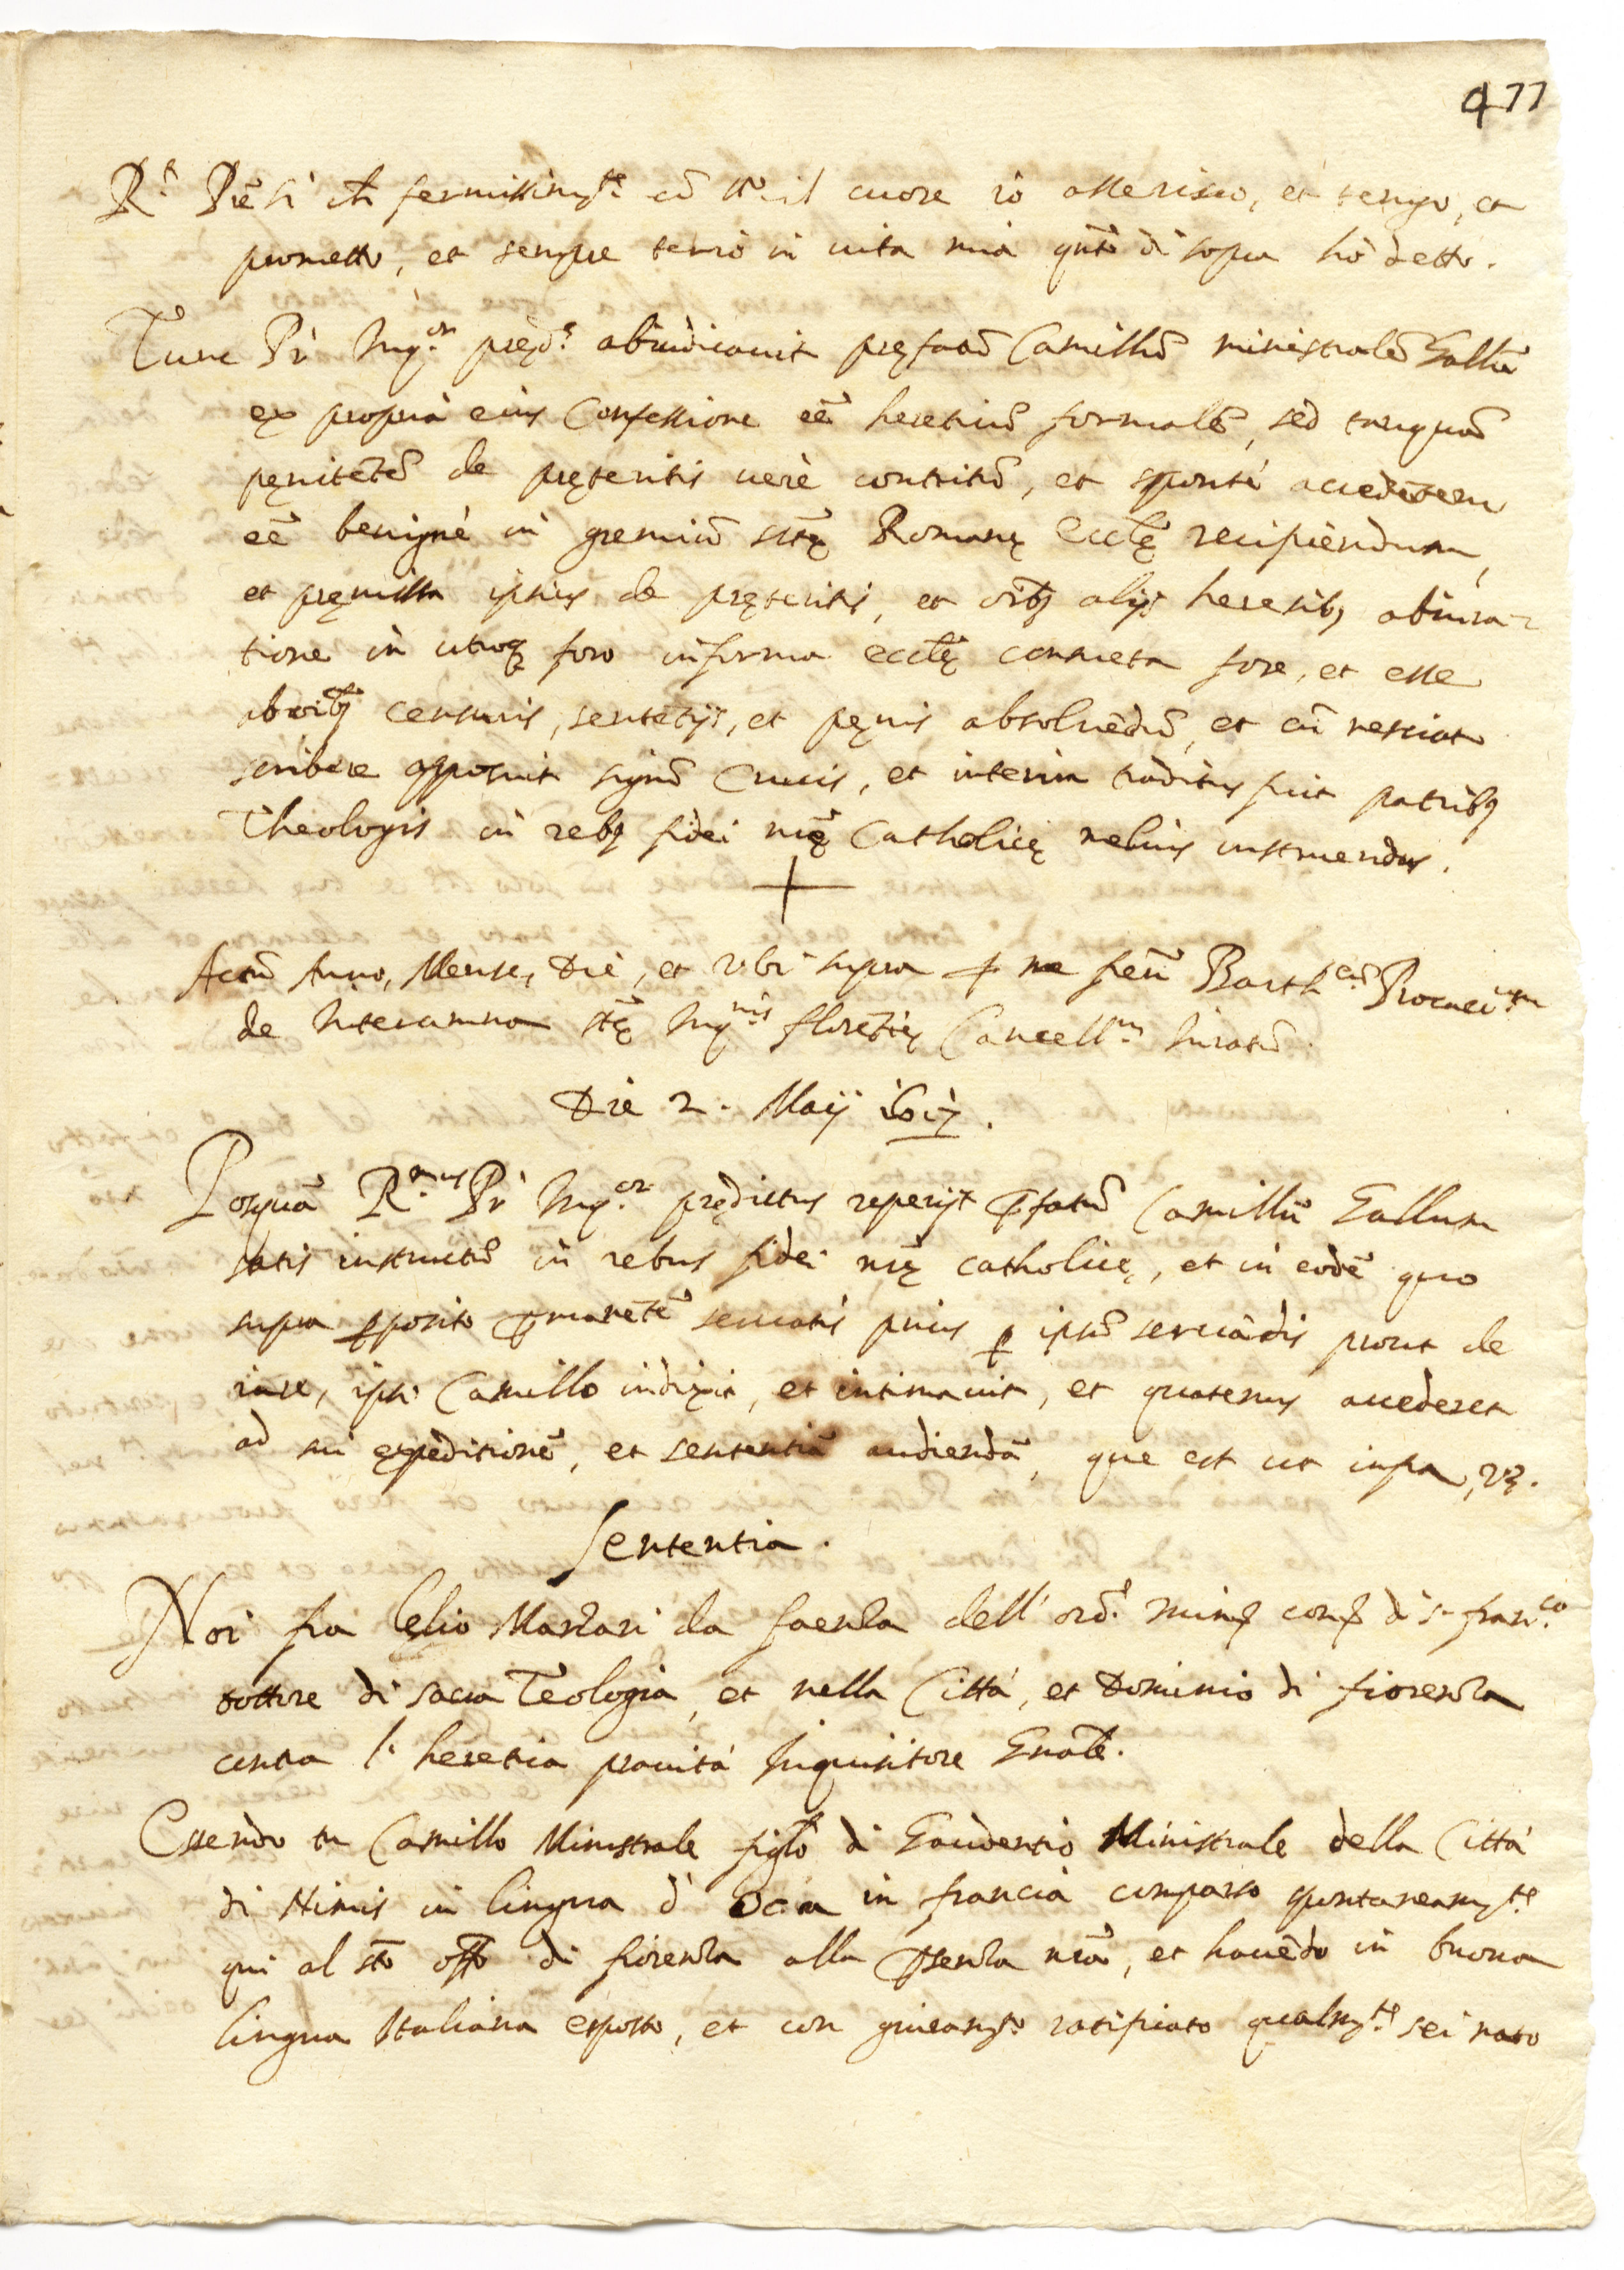 477
R.t Prē sì ch fermissimam.te cō tt.o il cuore io asserisco, et tengo, et
prometto, et sempre terrò in uita mia qnto di sopra hò detto.
Tunc Pr Inq.or pręd.s abiudicauit pręfatū Camillū ministralē Gallū
ex propria eius Confessione eē hereticū formalē, sed tanquā
pęnitētē de pręteritis uerè contritū, et spontè accedētem
eē benignè in gremiū stę Romanę Ecclę recipiendum,
et pręmissa ipsius de pręteritis, et oībq alijs heresibq abiura-
tione in utroq foro in forma ecclę consueta fore, et esse
ab oībq censuris, sentētijs, et pęnis absoluēdū, et cū nesciat
scribere apposuit signū Crucis, et interim traditus fuit patribq
Theologis in rebq fidei nrę Catholicę melius instruendus.
+
Actū Anno, Mense, Die, et vbi supra p me frem Barth.eū
de Interamna stę Inq.nis florētię Cancell.m Iuratū.
Die 2. Maij
Posquā R.mus Pr Inq.or prędictus reperijt pfatū Camillū Gallum
satis instructū in rebus fidei nrę catholicę, et in eodē quo
supra pposito pmanētē seruatis prius p ipsū seruādis prout de
iure, ipsi Camillo indixit, et intimauit, et quatenus accederet
ad sui expeditionē, et sententiā audiendā, que est ut infra, vz.
Sententia.
Noi fra Lelio Marzari da faenza dell' ord.e minj conj di s. fran.co
dottore di sacra Teologia, et nella Città, et Dominio di fiorenza
contra l' heretica prauità Inquisitore Gnāle.
Essendo tu Camillo Ministrale figlo di Gaudentio Ministrale della Città
di Nimis in lingua d' oca in francia comparso spontaneam.te
qui al sto offo di fiorenza alla psenza nrā, et hauēdo in buona
lingua Italiana esposto, et con giuram.to ratificato qualm.te sei nato